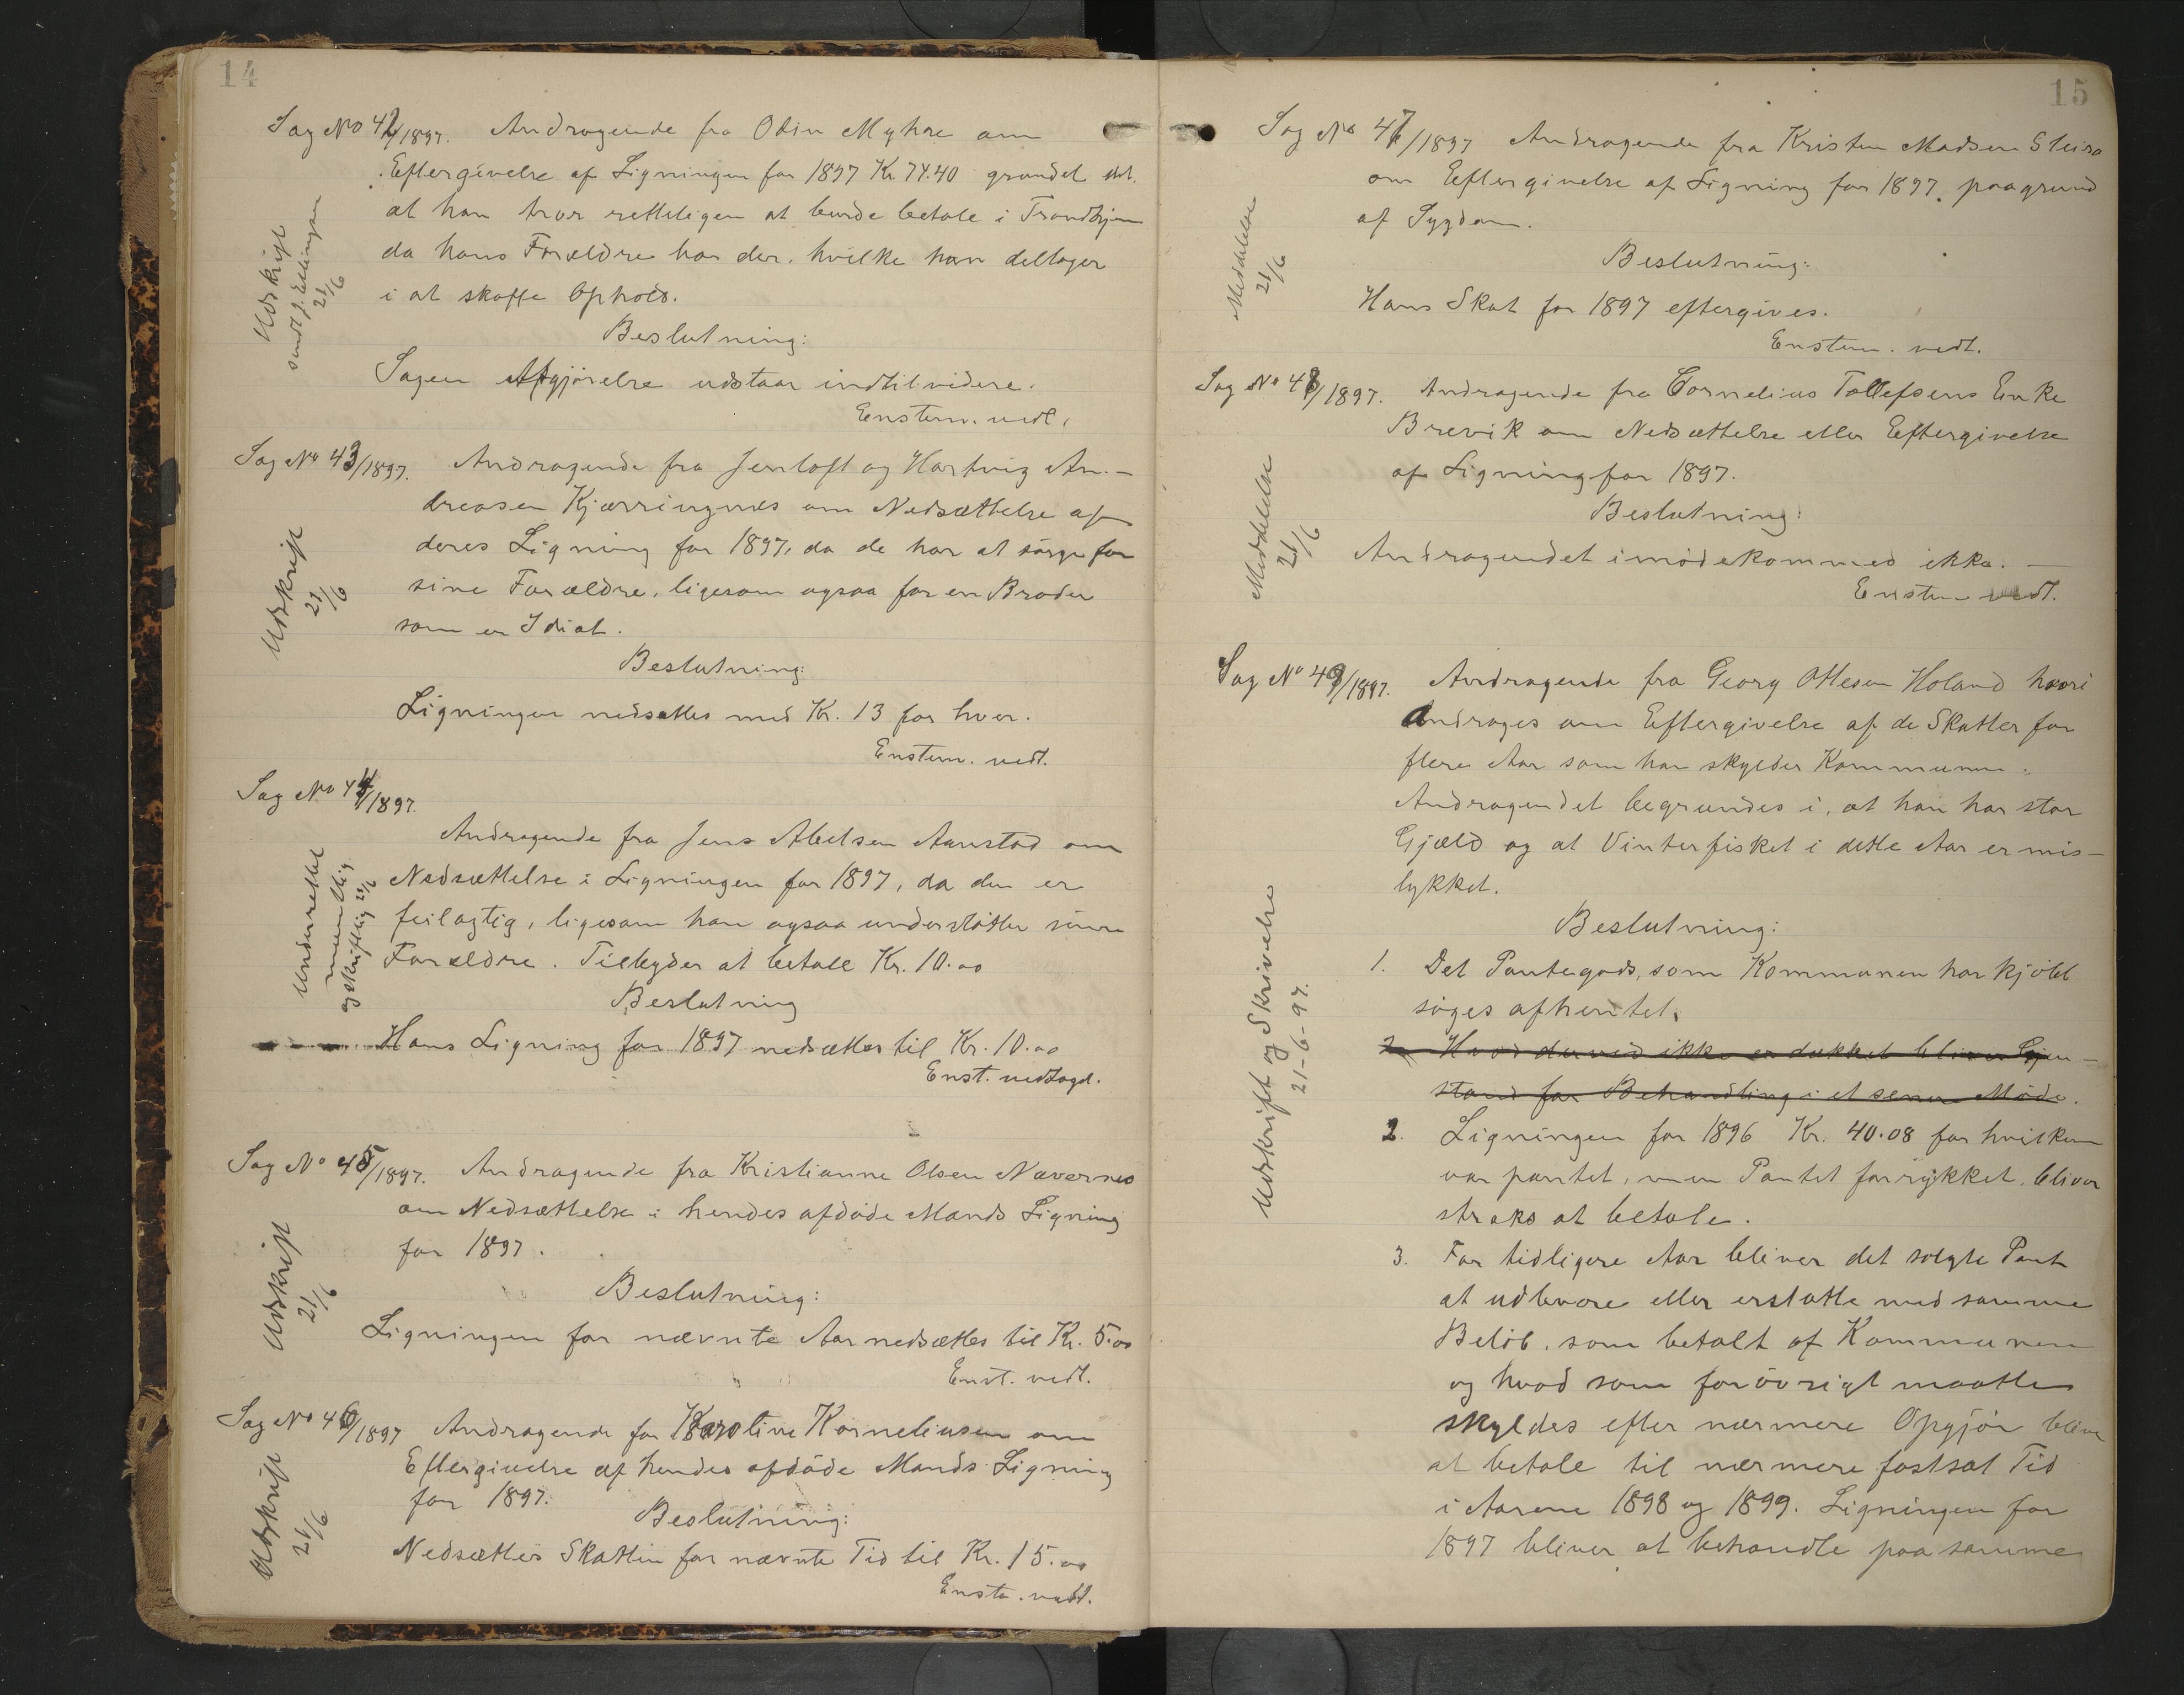 14
Sag No 42/1897. Andragende fra Odin Myhre om
Eftergivelse af Ligningen for 1897 Kr. 74.40 grundet
at han tror retteligen at burde betale i Trondhjem
da hans Forældre bor der, hvilke han deltager
i at skaffe Ophold.
Udskrift
21/6
Beslutning:
Sagen Afgjørelse udstaar indtil videre.
Enstem. vedt.
Sag No 43/1897. Andragende fra Jentoft og Hartvig An-
dreasen Kjærringnes om Nedsættelse af
deres Ligning for 1897, da de har at sørge for
sine Forældre, ligesom ogsaa for en Broder
som er Idiot.
Udskrift
21/6
Beslutning:
Ligningen nedsættes med Kr. 13 for hver.
Enstem. vedt.
Sag No 44/1897.
Andragende fra Jens Abelsen Aanstad om
Nedsættelse i Ligningen for 1897, da den er
feilagtig, ligesom han ogsaa understøtter sine
Forældre. Tilbyder at betale Kr. 10.00
Underrettet
mundtlig
og skriftlig 21/6
Beslutning
Hans Ligning for 1897 nedsættes til Kr. 10.00
Enst. vedtaget.
Sag No 45/1897. Andragende fra Kristianne Olsen Navernes
om Nedsættelse i hendes afdøde Mands Ligning
for 1897.
Udskrift
21/6
Beslutning:
Ligningen for nævnte Aar nedsættes til Kr. 5.00
Enst. vedt.
Sag No 46/1897 Andragende fra Karoline Korneliusen om
Eftergivelse af hendes afdøde Mands Ligning
for 1897.
Udskrift
21/6
Beslutning:
Nedsættes Skatten for nævnte Tid til Kr. 15.00
Enste. vedt.
15
Sag No 47/1897 Andragende fra Kristen Madsen Steiro
om Eftergivelse af Ligning for 1897. paagrund
af Sygdom.
Meddelelse
21/6
Beslutning:
Hans Skat for 1897 eftergives.
Enstem. vedt.
Sag No 48/1897. Andragende fra Cornelius Tollefsens Enke
Brevik om Nedsættelse eller Eftergivelse
af Ligning for 1897.
Meddelelse
21/6
Beslutning:
Andragendet imødekommes ikke. —
Enstem vedt.
Sag No 49/1897. Andragende fra Georg Ottesen Holand hvori
andrages om Eftergivelse af de Skatter for
flere Aar som han skylder Kommunen.
Andragendet begrundes i, at han har stor
Gjæld og at Vinterfisket i dette Aar er mis-
lykket.
Udskrift og Skrivelse
21-6-97.
Beslutning:
1. Det Pantegods, som Kommunen har kjøbt
søges afhentet.
2. Hvad derved ikke er dækket bliver Gjen-
stand for Behandling i et senere Møde.
2. Ligningen for 1896 Kr. 40.08 for hvilken
var pantet, men Pantet forrykket, bliver
straks at betale.
3. For tidligere Aar bliver det solgte Pant
at udlevere eller erstatte med samme
Beløb, som betalt af Kommunen
og hvad som forøvrigt maatte
skyldes efter nærmere Opgjør bliver
at betale til nærmere fastsat Tid
i Aarene 1898 og 1899. Ligningen for
1897 bliver at behandle paa samme